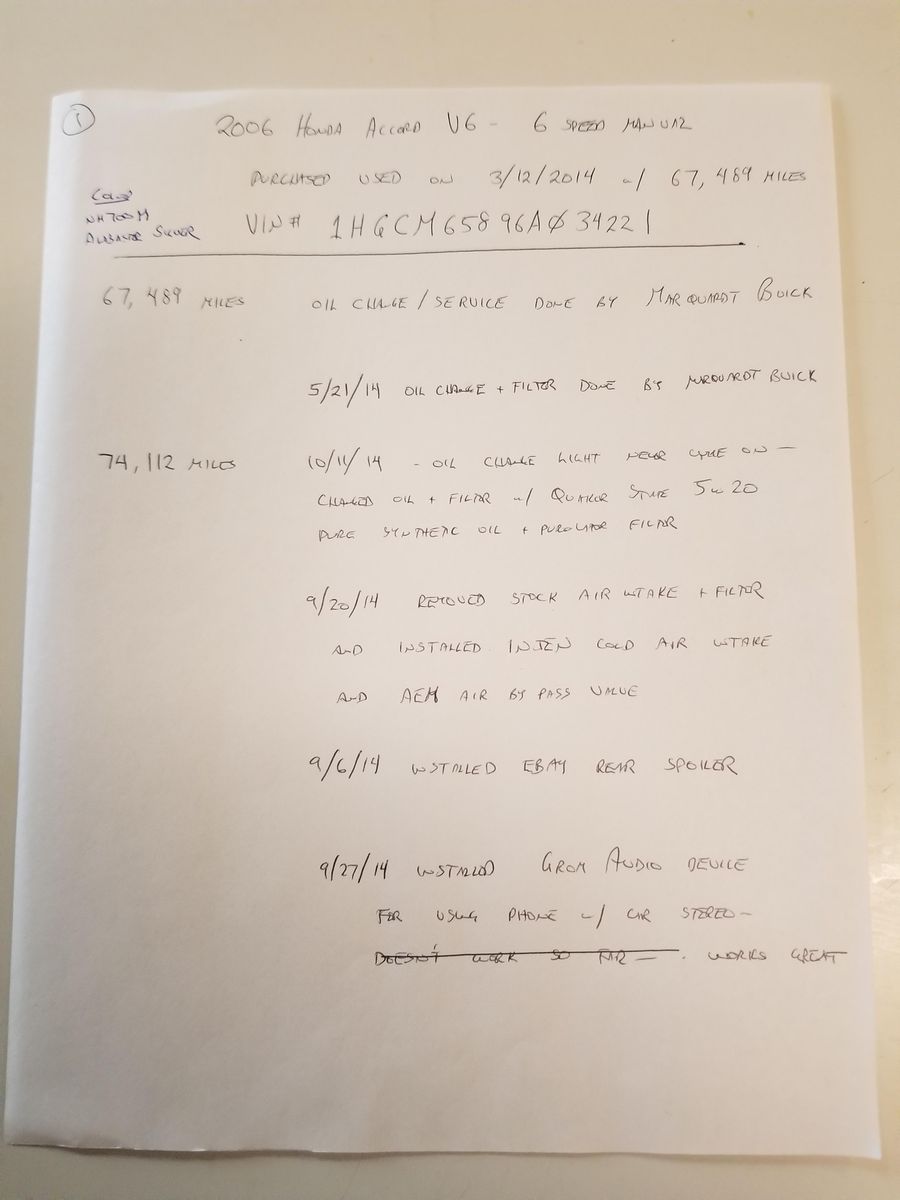 1
2006 HONDA ACCORD V6 - 6 SPEED MANUAL
PURCHASED USED ON 3/12/2014 w/ 67,489 MILES
COLOR
NH700M
ALABASTER SILVER
VIN# 1HGCM65896AØ34221
67,489 MILES OIL CHANGE/SERVICE DONE BY MARQUARDT BUICK
5/21/14 OIL CHANGE + FILTER DONE BY MARQUARDT BUICK
74,112 MILES 10/11/14 - OIL CHANGE LIGHT NEVER CAME ON -
CHANGED OIL + FILTER w/ QUAKER STATE 5w20
PURE SYNTHETIC OIL + PUROLATOR FILTER
9/20/14 REMOVED STOCK AIR INTAKE + FILTER
AND INSTALLED INJEN COLD AIR INTAKE
AND AEM AIR BY PASS VALVE
9/6/14 INSTALLED EBAY REAR SPOILER
9/27/14 INSTALLED GROM AUDIO DEVICE
FOR USING PHONE w/ CAR STEREO -
DOESN'T WORK SO FAR - . WORKS GREAT